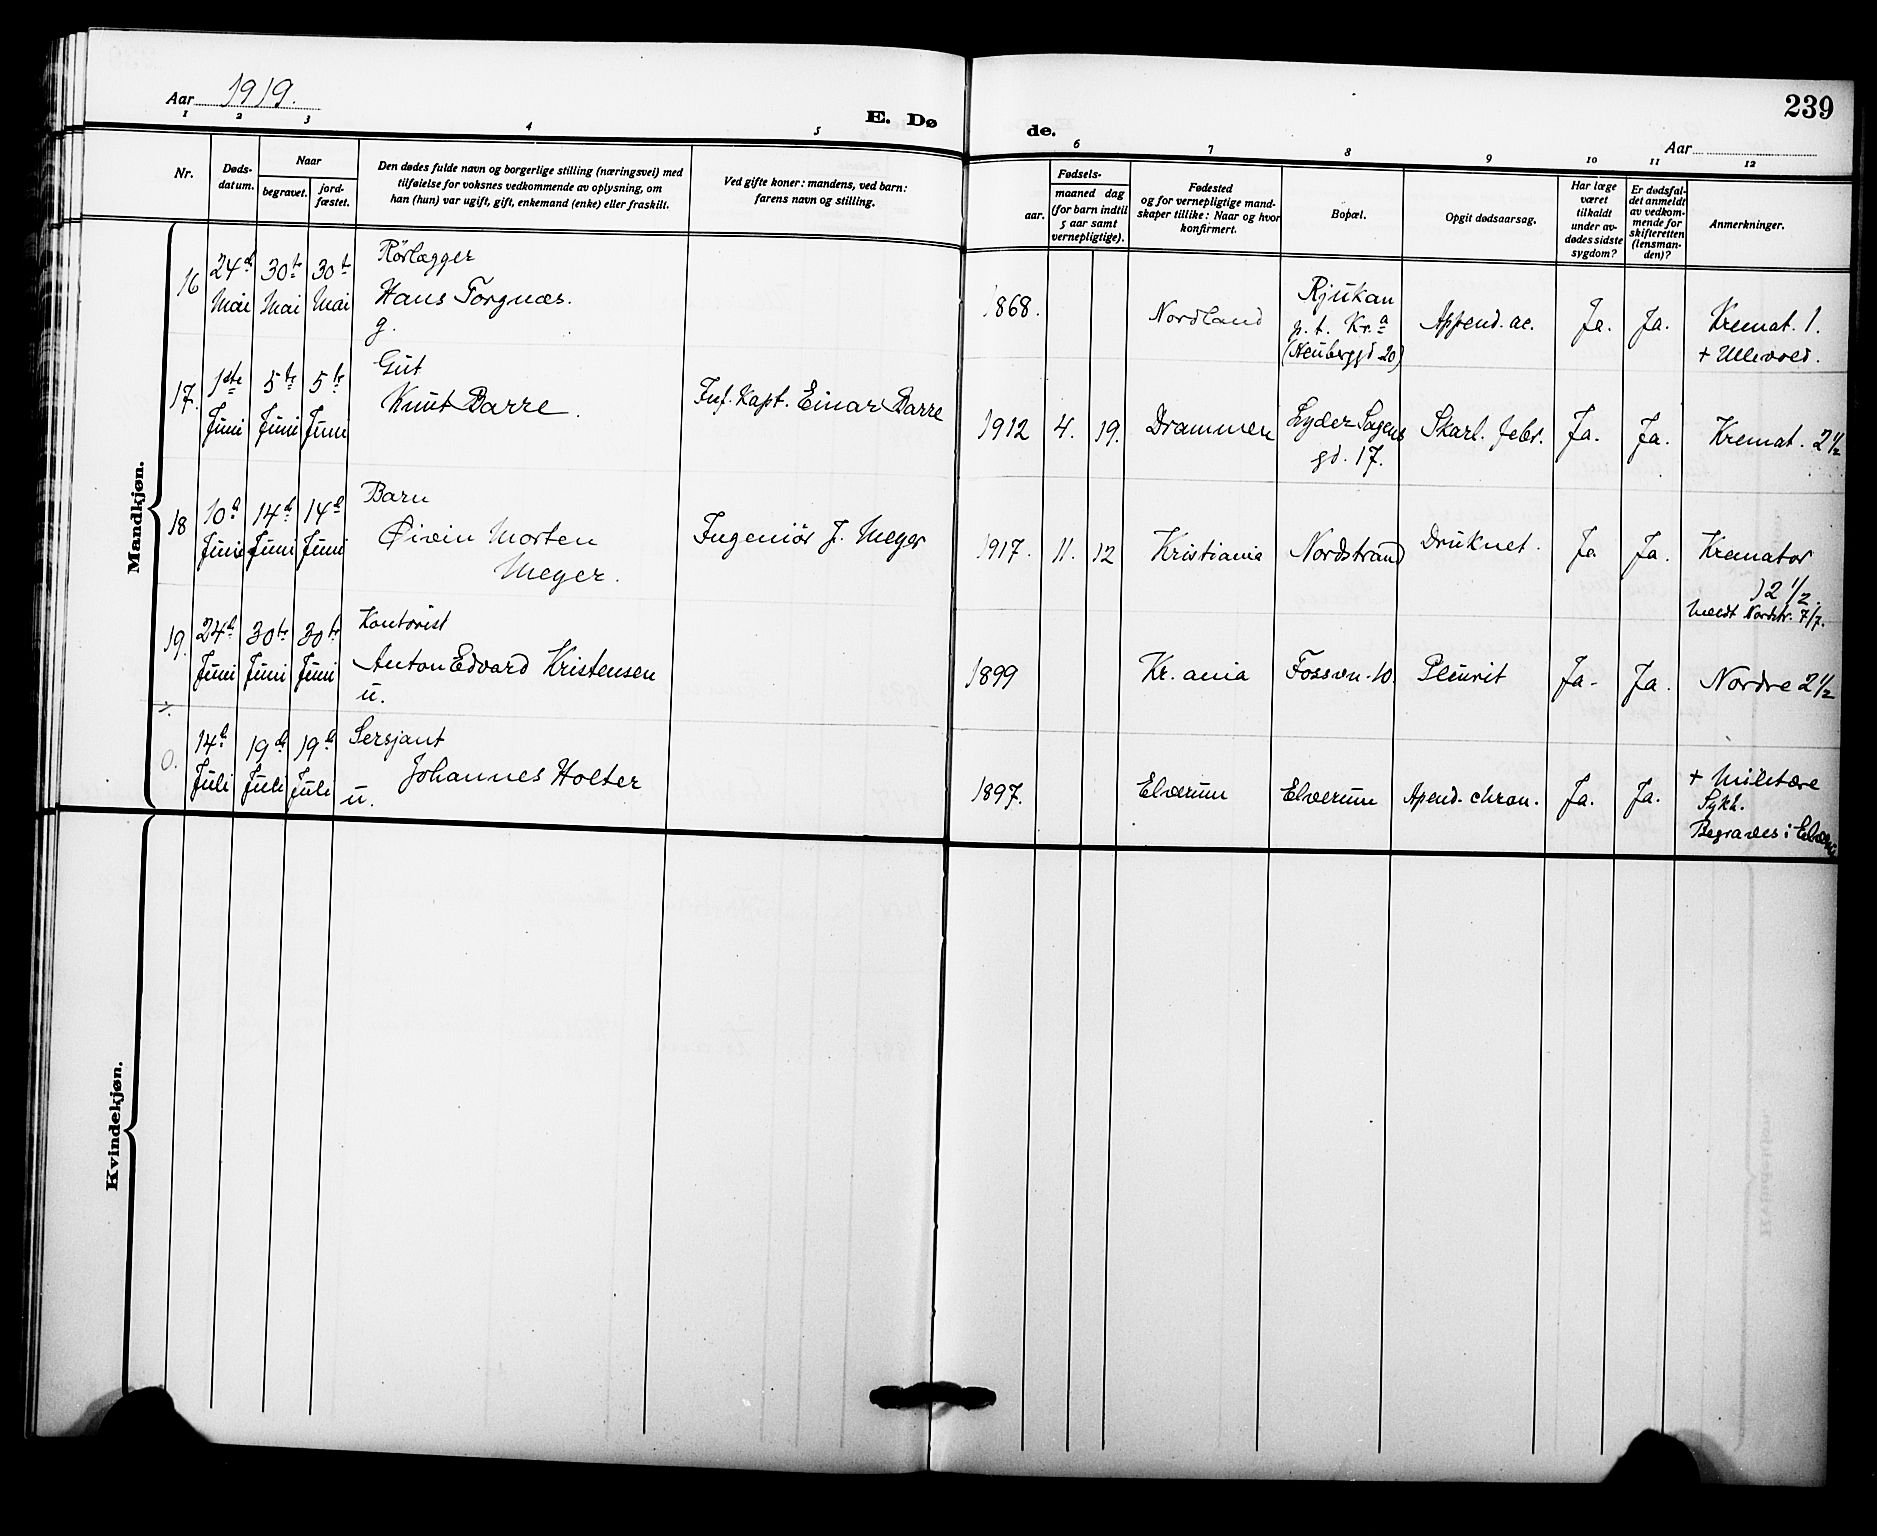 Aar 1919.
E. Døde.
239
Aar
1 2 3 4 5 6 7 8 9 10 11 12
Nr.
Døds-
datum.
Naar
begravet.
jord-
fæstet.
Den dødes fulde navn og borgerlige stilling (næringsvei) med
tilføielse for voksnes vedkommende av oplysning, om
han (hun) var ugift, gift, enkemand (enke) eller fraskilt.
Ved gifte koner: mandens, ved barn:
farens navn og stilling.
Fødsels-
aar.
maaned dag
(for barn indtil
5 aar samt
vernepligtige).
Fødested
og for vernepligtige mand-
skaper tillike: Naar og hvor
konfirmert.
Bopæl.
Opgit dødsaarsag.
Har læge
været
tilkaldt
under av-
dødes sidste
sygdom?
Er dødsfal-
det anmeldt
av vedkom-
mende for
skifteretten
(lensman-
den)?
Anmerkninger.
Mandkjøn.
16
24d
Mai
30te
Mai
30te
Mai
Rørlægger
Hans Torgnæs.
g.
1868.
Nordland
Rjukan
p. t. Kr.a
(Heuberggd 20)
Append. ac.
Ja.
Ja.
Kremat. 1.
+ Ullevold.
17.
1ste
Juni
5te
Juni
5te
Juni
Gut
Knut Barre.
Inf. Kapt. Einar Barre
1912
4.
19.
Drammen
Lyder Sagens
gd. 17.
Skarl. febr.
Ja.
Ja.
Kremat. 2 1/2
18
10d
Juni
14d
Juni
14d
Juni
Barn
Øivin Morten
Meyer.
Ingeniør J. Meyer
1917.
11.
12
Kristiania
Nordstrand
Druknet.
Ja
Ja.
Kremator
) 2 1/2.
Meldt Nordstr. 7/7.
19.
24d
Juni
30te
Juni
30te
Juni
Kontorist
Anton Edvard Kristensen
u.
1899
Kr. ania
Fossvn. 10.
Pleurit
Ja.
Ja.
Nordre 2 1/2
0.
14d
Juli
19d
Juli
19d
Juli
Sersjant
Johannes Holter
u.
1897.
Elverum
Elverum
Apend. chron.
Ja.
Ja.
+ Militære
Sykh.
Begraves i Elverum
Kvindekjøn.